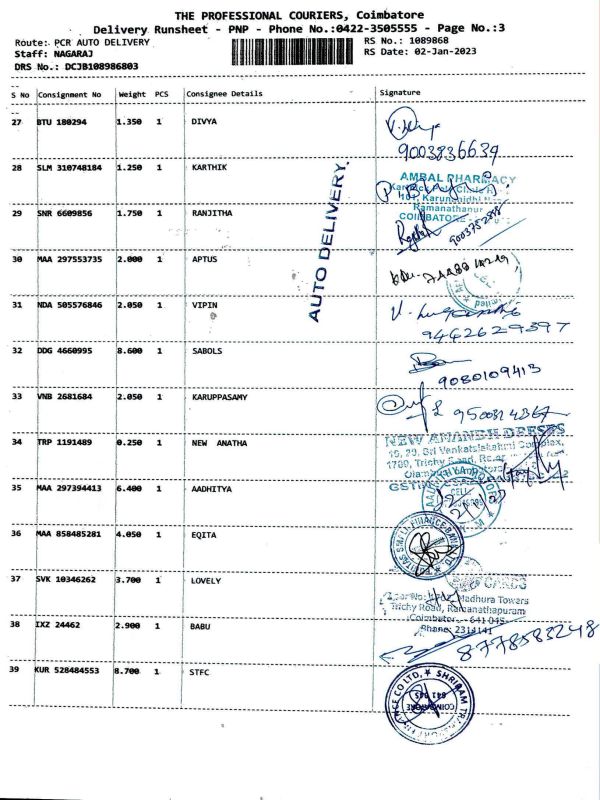 THE PROFESSIONAL COURIERS, Coimbatore
Delivery Runsheet - PNP - Phone No.:0422-3505555 - Page No.:3
Route: PCR AUTO DELIVERY RS No.: 1089868
Staff: NAGARAJ RS Date: 02-Jan-2023
DRS No.: DCJB108986803
S No Consignment No Weight PCS Consignee Details Signature
27 BTU 180294 1.350 1 DIVYA
9003836639
28 SLM 310748184 1.250 1 KARTHIK
AMBAL PHARMACY
Ramanathapur
COIMBATORE
29 SNR 6609856 1.750 1 RANJITHA
AUTO DELIVERY.
30 MAA 297553735 2.000 1 APTUS
31 NDA 505576846 2.050 1 VIPIN
9442629397
32 DDG 4660995 8.600 1 SABOLS
9080109413
33 VNB 2681684 2.050 1 KARUPPASAMY
34 TRP 1191489 0.250 1 NEW ANATHA
NEW ANANDH DRESSES
19, 20, Sri Venkatalakshmi Complex,
1789, Trichy Road,
35 MAA 297394413 6.400 1 AADHITYA
CELL
36 MAA 858485281 4.050 1 EQITA
37 SVK 10346262 3.700 1 LOVELY
CARDS
Madhura Towers
Trichy Road, Ramanathapuram
Coimbatore - 641 045
Phone: 2314141
38 IXZ 24462 2.900 1 BABU
8778583248
39 KUR 528484553 8.700 1 STFC
SHRIRAM
FINANCE CO LTD,
COIMBATORE
641 045